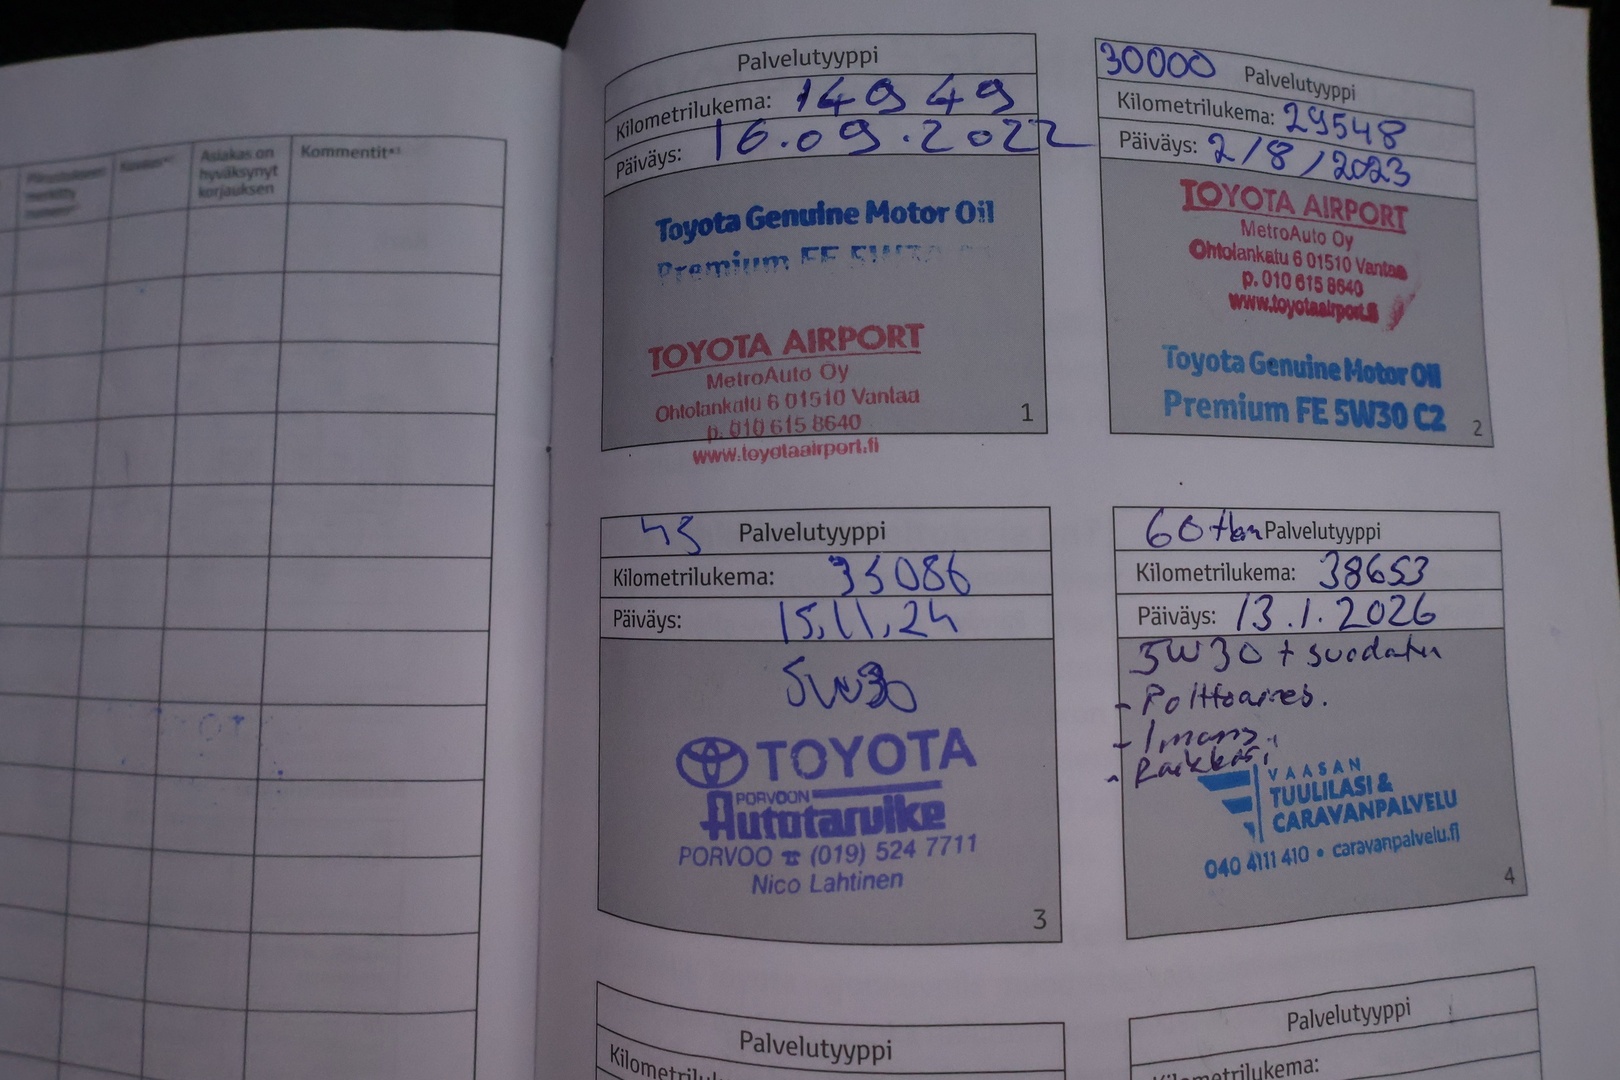 Asiakas on
hyväksynyt
korjauksen
Kommentit*³
Palvelutyyppi
Kilometrilukema: 14949
Päiväys: 16.09.2022
Toyota Genuine Motor Oil
Premium FE 5W30
TOYOTA AIRPORT
MetroAuto Oy
Ohtolankatu 6 01510 Vantaa
p. 010 615 8640
www.toyotaairport.fi
1
30000 Palvelutyyppi
Kilometrilukema: 29548
Päiväys: 2/8/2023
TOYOTA AIRPORT
MetroAuto Oy
Ohtolankatu 6 01510 Vantaa
p. 010 615 8640
www.toyotaairport.fi
Toyota Genuine Motor Oil
Premium FE 5W30 C2
2
45 Palvelutyyppi
Kilometrilukema: 35086
Päiväys: 15.11.24
5W30
TOYOTA
PORVOON
Autotarvike
PORVOO ☎ (019) 524 7711
Nico Lahtinen
3
60 tkm Palvelutyyppi
Kilometrilukema: 38653
Päiväys: 13.1.2026
5W30 + suodatin
- Polttoaines.
- Imans.
- Raikkasi
VAASAN
TUULILASI &
CARAVANPALVELU
040 4111 410 • caravanpalvelu.fi
4
Palvelutyyppi
Kilometrilukema:
Palvelutyyppi
Kilometrilukema: